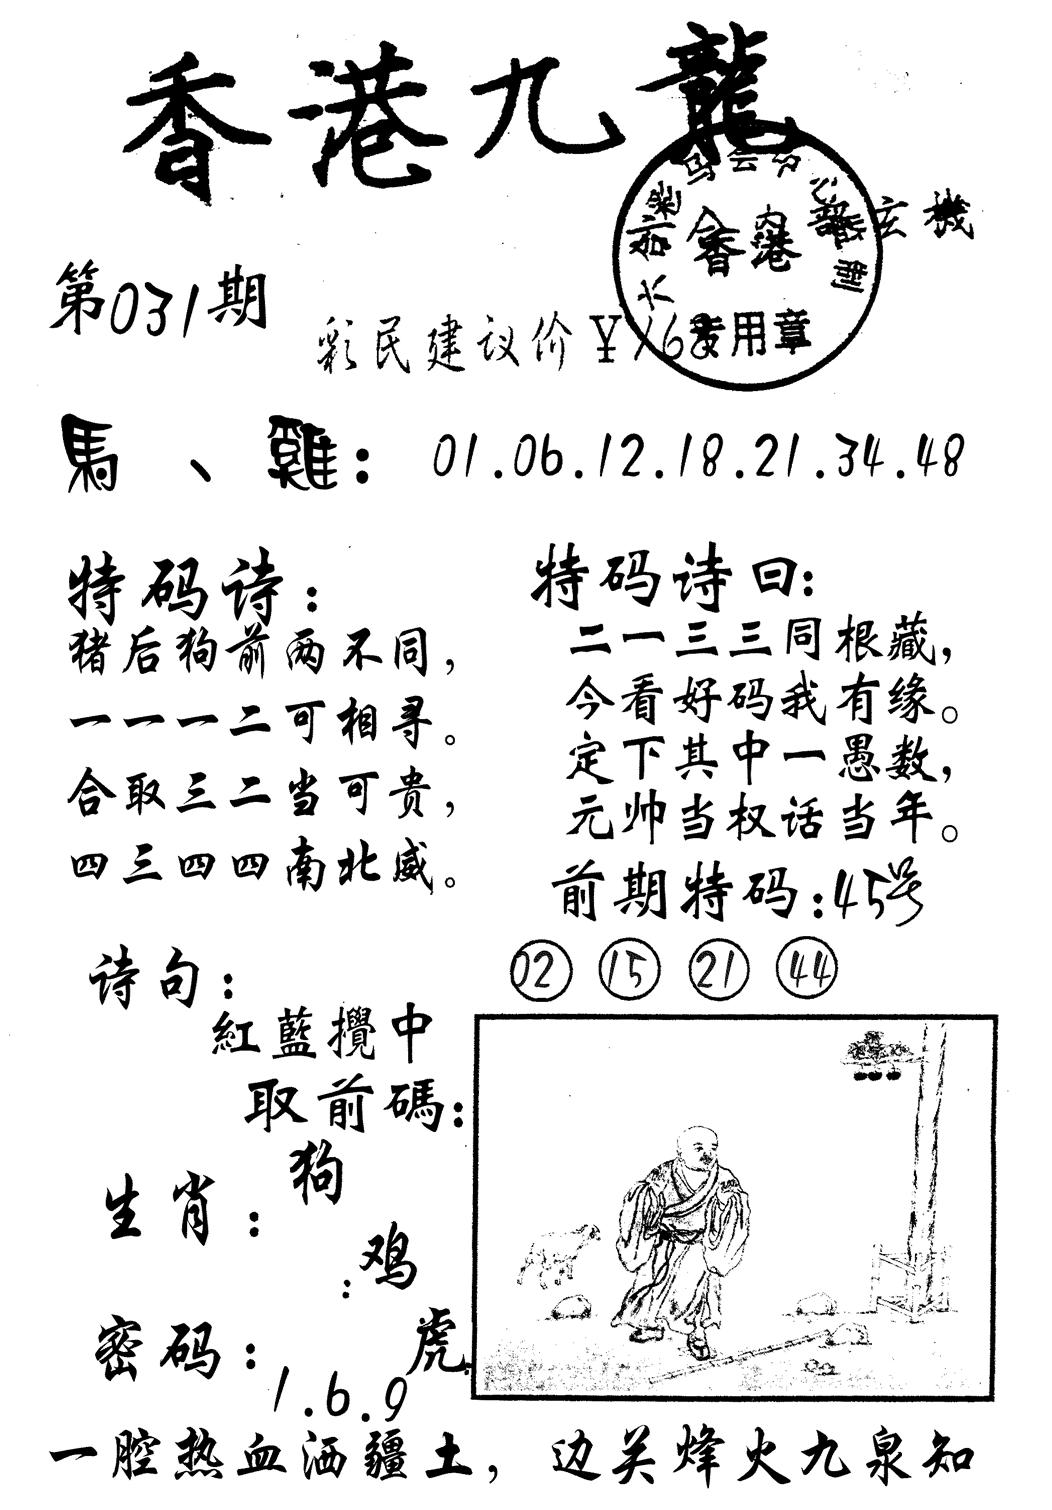 香港九龍
玄機
香港
专用章
第031期
彩民建议价￥168
馬、雞：01.06.12.18.21.34.48
特码诗：
猪后狗前两不同，
一一一二可相寻。
合取三二当可贵，
四三四四南北威。
特码诗曰：
二一三三同根藏，
今看好码我有缘。
定下其中一愚数，
元帅当权话当年。
前期特码：45号
02 15 21 44
诗句：
紅藍攪中
取前碼：
生肖：
狗
：鸡
虎
密码：
1.6.9
一腔热血洒疆土，边关烽火九泉知